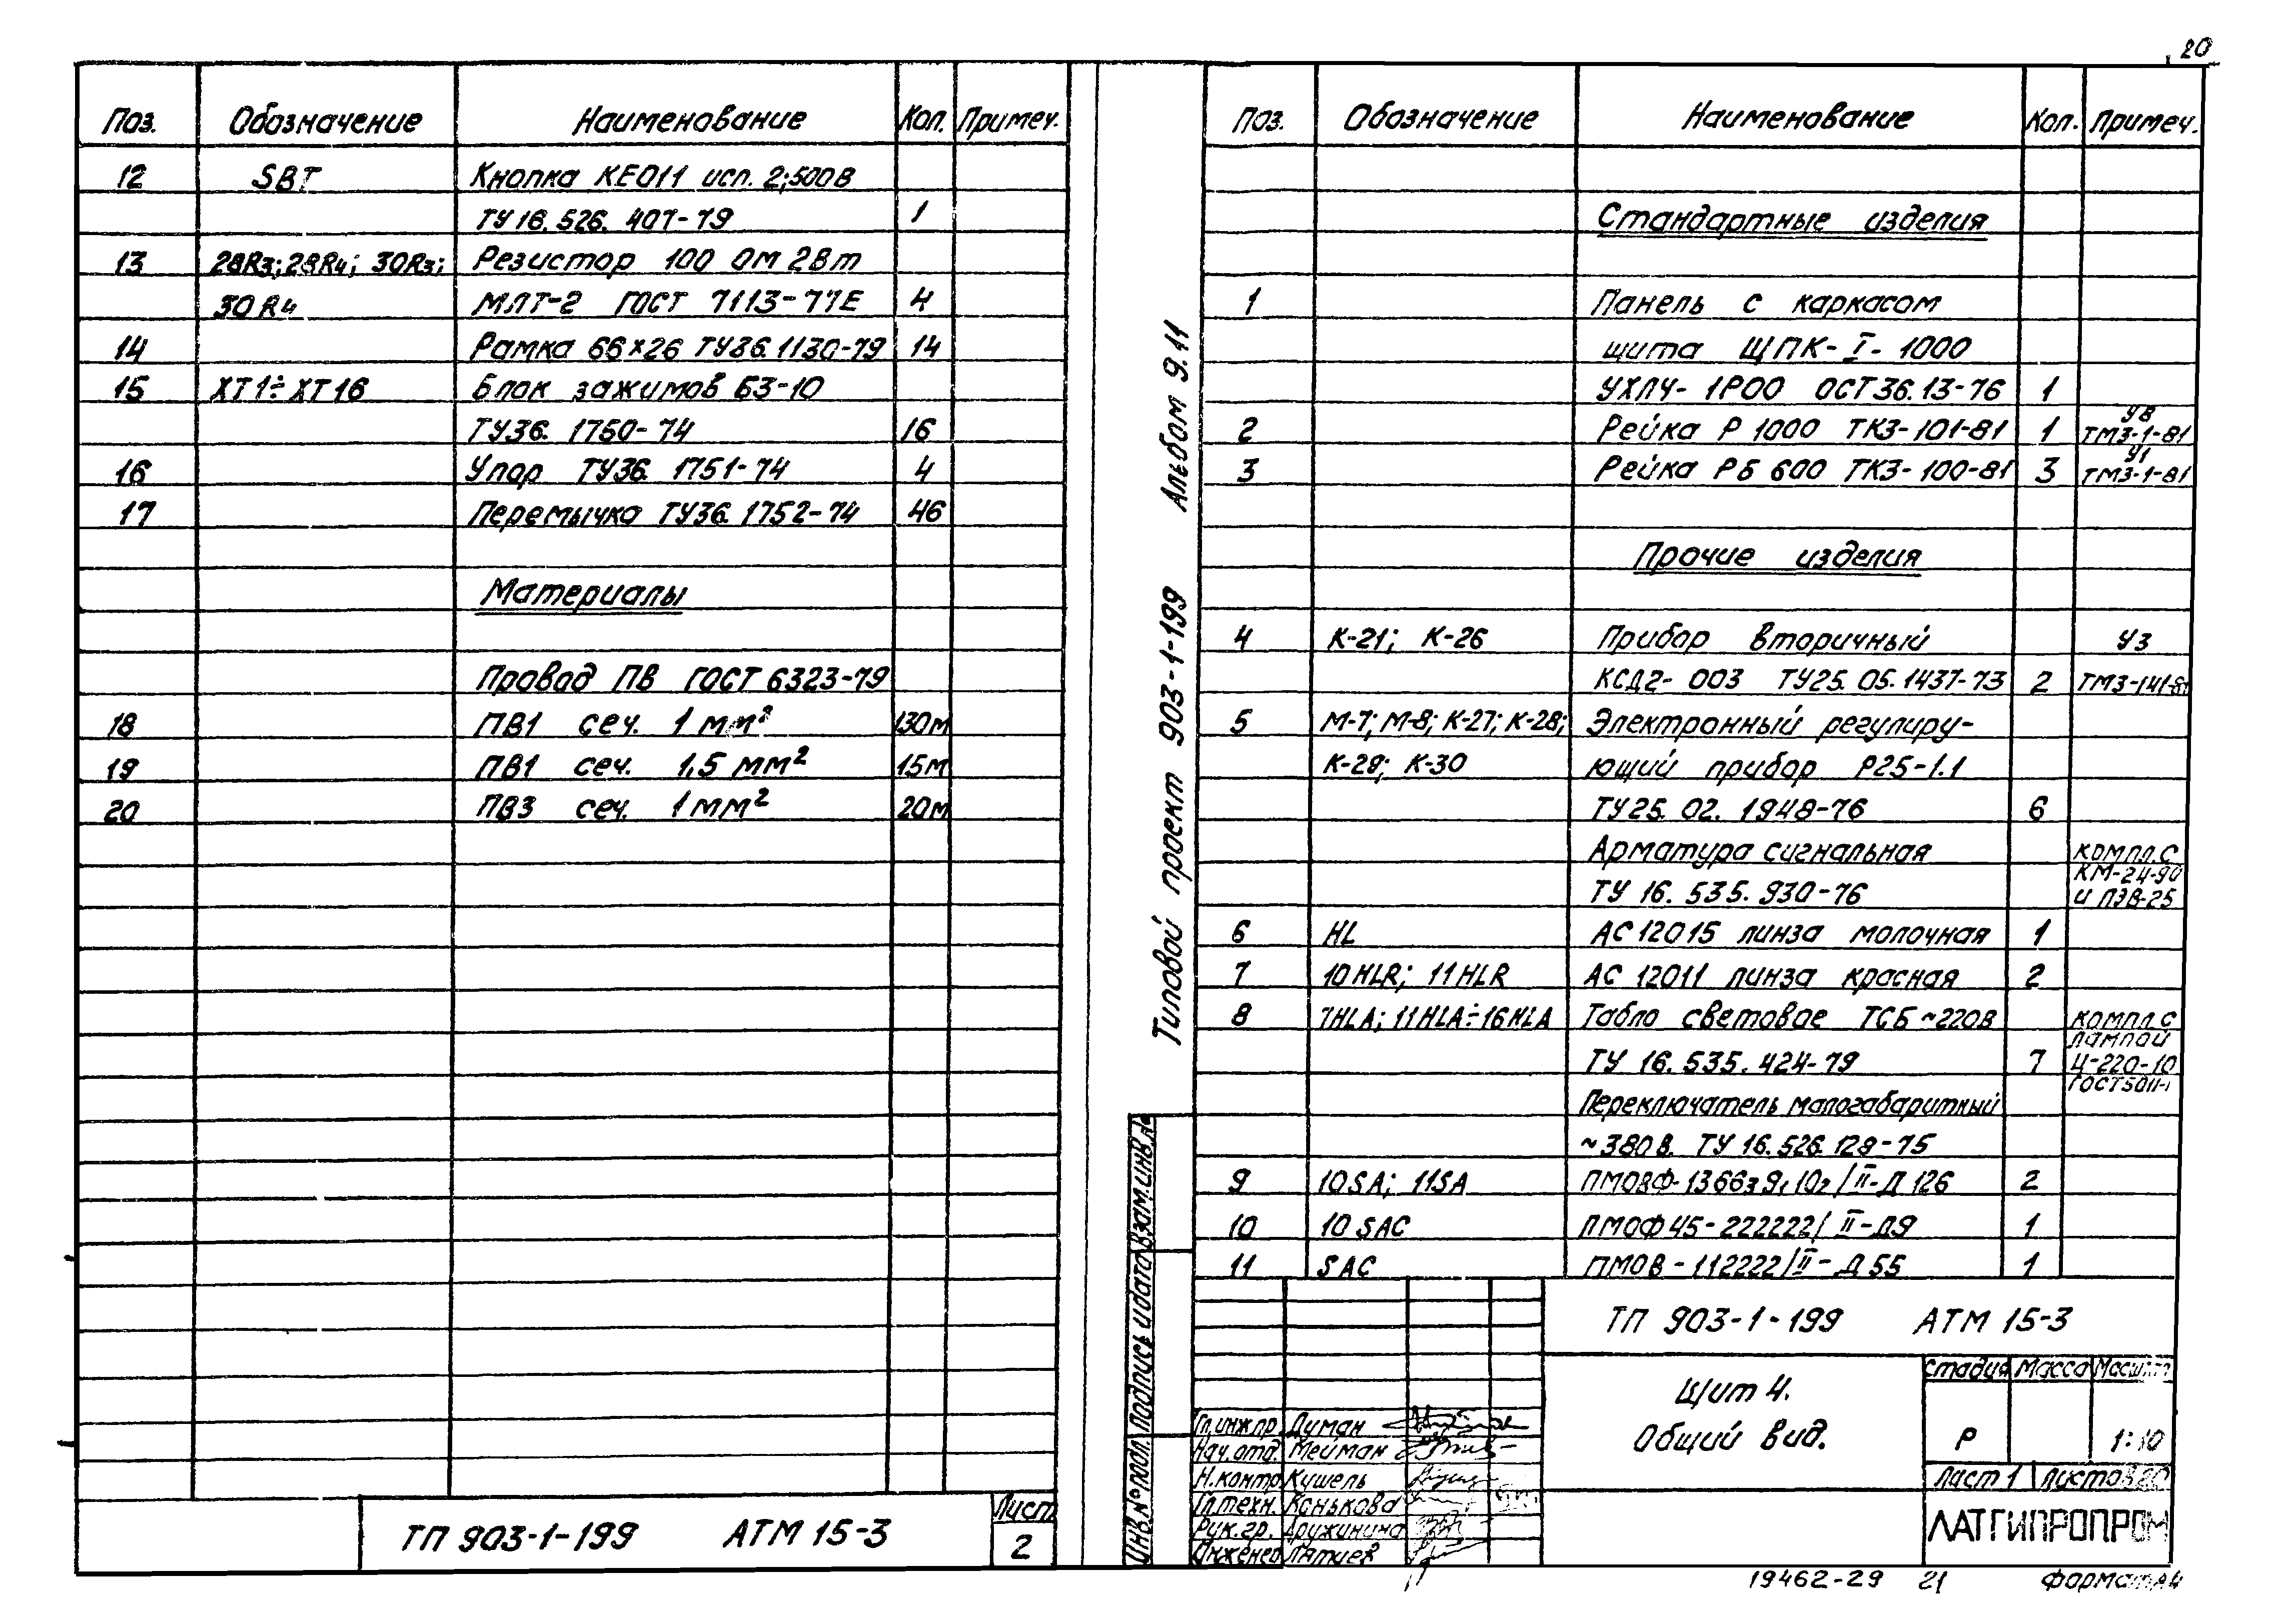 20
Поз. Обозначение Наименование Кол. Примеч.
12 SBT Кнопка КЕ011 исп. 2; 500В
ТУ 16. 526. 407-79 1
13 28R3; 28R4; 30R3; Резистор 100 Ом 2Вт
30R4 МЛТ-2 ГОСТ 7113-77Е 4
14 Рамка 66×26 ТУ36. 1130-79 14
15 ХТ1÷ХТ16 Блок зажимов БЗ-10
ТУ36. 1750-74 16
16 Упор ТУ36. 1751-74 4
17 Перемычка ТУ36. 1752-74 46
Материалы
Провод ПВ ГОСТ 6323-79
18 ПВ1 сеч. 1 мм² 130м
19 ПВ1 сеч. 1,5 мм² 15м
20 ПВ3 сеч. 1 мм² 20м
ТП 903-1-199 АТМ 15-3
Лист
2
Типовой проект 903-1-199 Альбом 9.11
Инв.№ подл. Подпись и дата Взам.инв.№
Поз. Обозначение Наименование Кол. Примеч.
Стандартные изделия
1 Панель с каркасом
щита ЩПК-I-1000
УХЛ4-1Р00 ОСТ 36.13-76 1
2 Рейка Р 1000 ТК3-101-81 1 У8 ТМ3-1-81
3 Рейка РБ 600 ТК3-100-81 3 У1 ТМ3-1-81
Прочие изделия
4 К-21; К-26 Прибор вторичный У3
КСД2-003 ТУ25.05.1437-73 2 ТМ3-141-81
5 М-7; М-8; К-27; К-28; Электронный регулиру-
К-29; К-30 ющий прибор Р25-1.1
ТУ25. 02. 1948-76 6
Арматура сигнальная компл. с
ТУ 16. 535. 930-76 КМ-24-90 и ПЭВ-25
6 HL АС 12015 линза молочная 1
7 10HLR; 11HLR АС 12011 линза красная 2
8 7HLA; 11HLA÷16HLA Табло световое ТСБ ~220В компл. с
лампой
ТУ 16. 535. 424-79 7 Ц-220-10
ГОСТ5011-
Переключатель малогабаритный
~380В. ТУ 16.526.128-75
9 10SA; 11SA ПМОВФ-1366₃9₁10₂/II-Д126 2
10 10SAC ПМОФ45-222222/II-Д9 1
11 SAC ПМОВ-112222/II-Д55 1
ТП 903-1-199 АТМ 15-3
Щит 4.
Общий вид.
Стадия Масса Масштаб
Р 1:10
Лист 1 Листов
ЛАТГИПРОПРОМ
Гл.инж.пр. Думан
Нач.отд. Мейман
Н.контр. Кушель
Гл.техн. Конькова
Рук.гр. Дружинина
Инженер
19462-29 21 Формат А4